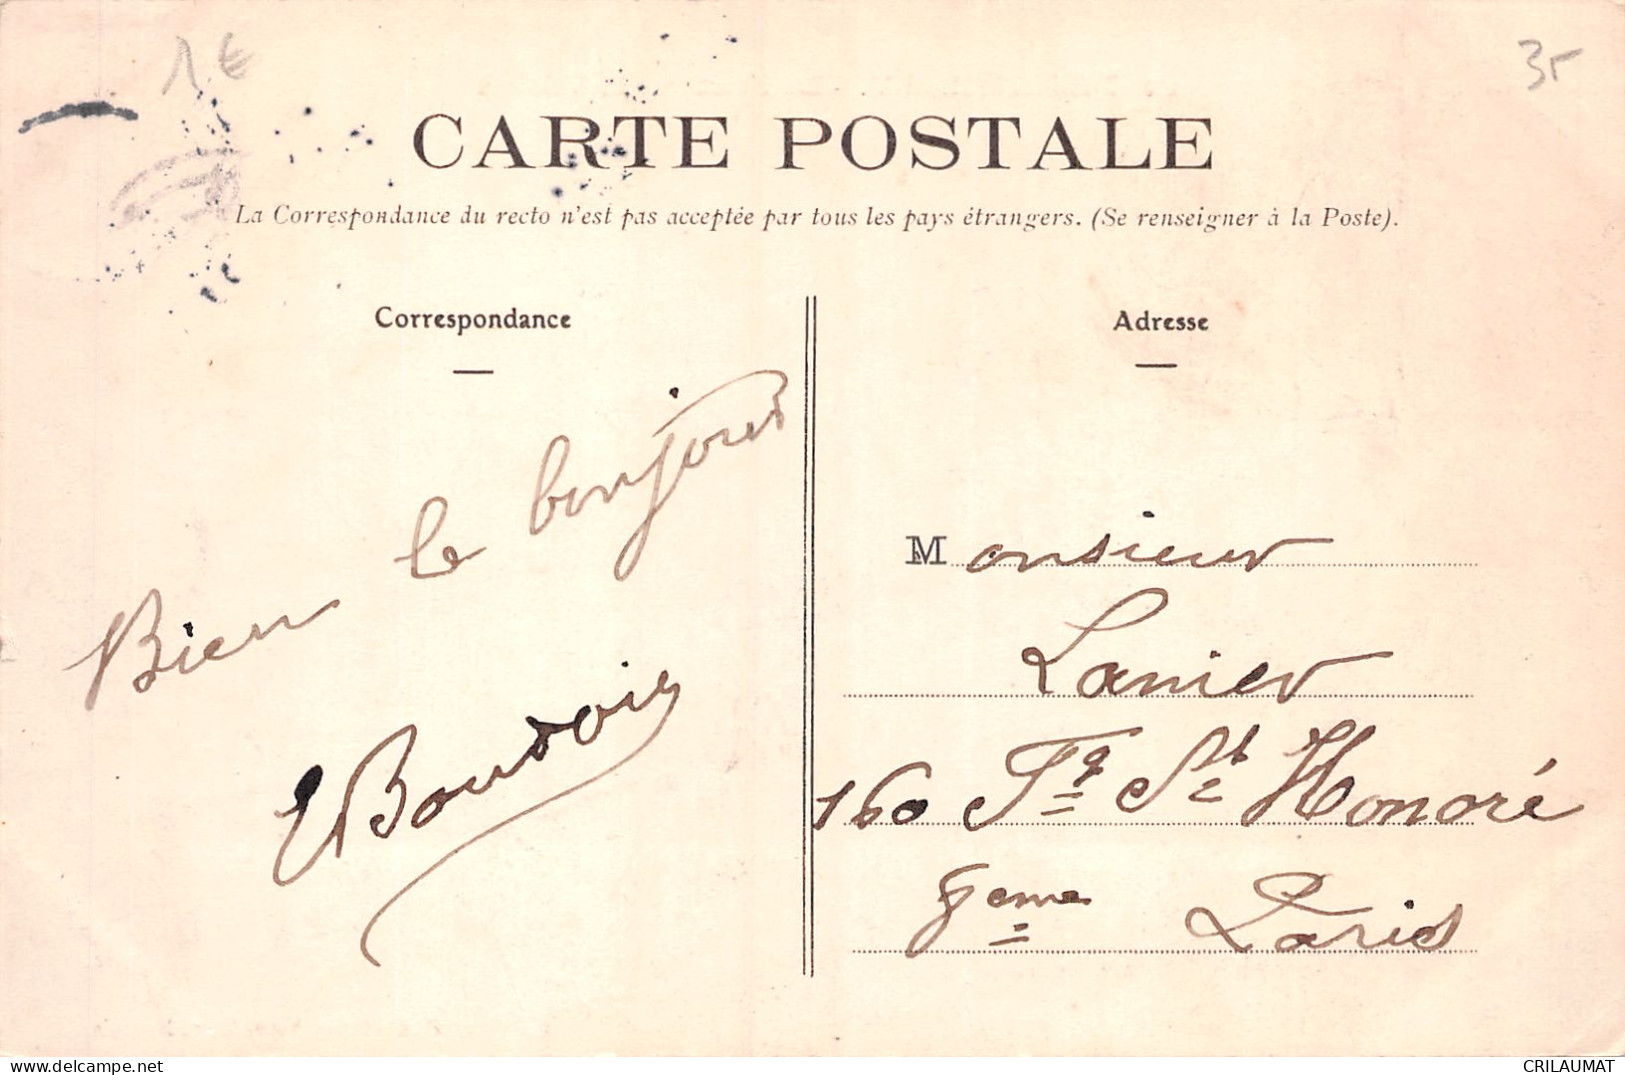 1€
35
CARTE POSTALE
La Correspondance du recto n'est pas acceptée par tous les pays étrangers. (Se renseigner à la Poste).
Correspondance
Bien le bonjour
EBoudois
Adresse
Monsieur
Lanier
160 Fg St Honoré
8eme Paris
www.delcampe.net
CRILAUMAT